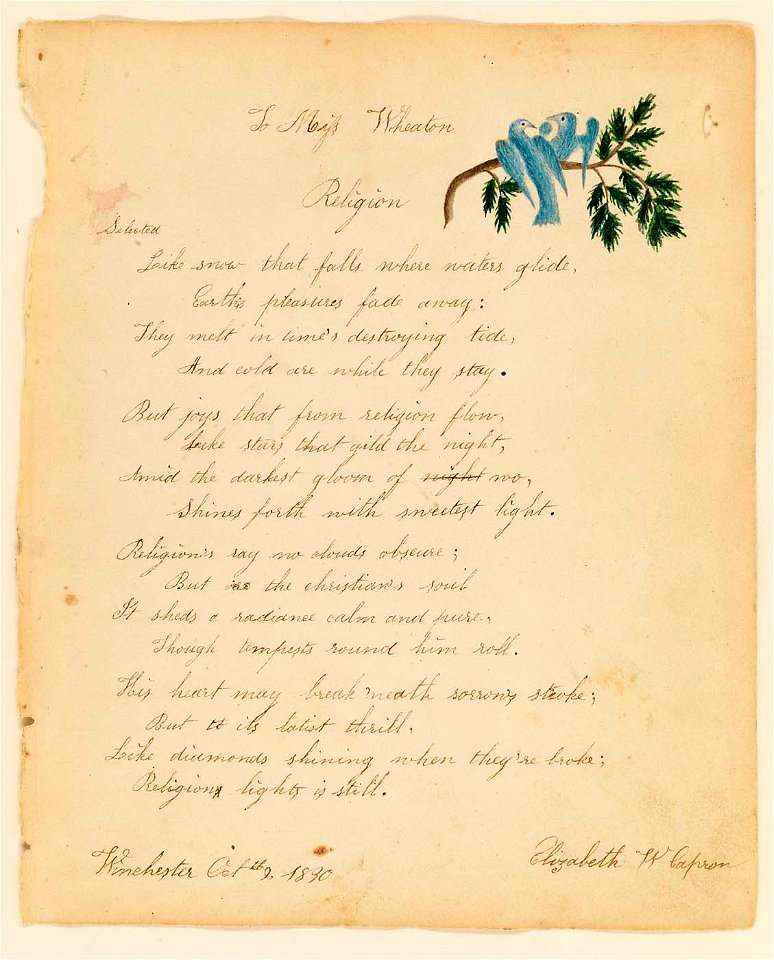 To Miss Wheaton
Religion
Selected
Like snow that falls where waters glide,
Earth's pleasures fade away:
They melt in time's destroying tide,
And cold are while they stay.
But joys that from religion flow,
Like stars that gild the night,
Amid the darkest gloom of night wo,
Shines forth with sweetest light.
Religion's ray no clouds obscure;
But the christian's soul
It sheds a radiance calm and pure,
Though tempests round him roll.
His heart may break 'neath sorrow's stroke;
But to its latist thrill,
Like diamonds shining when they're broke;
Religion's light, is still.
Winchester Oct th 9, 1830
Elizabeth W Capron